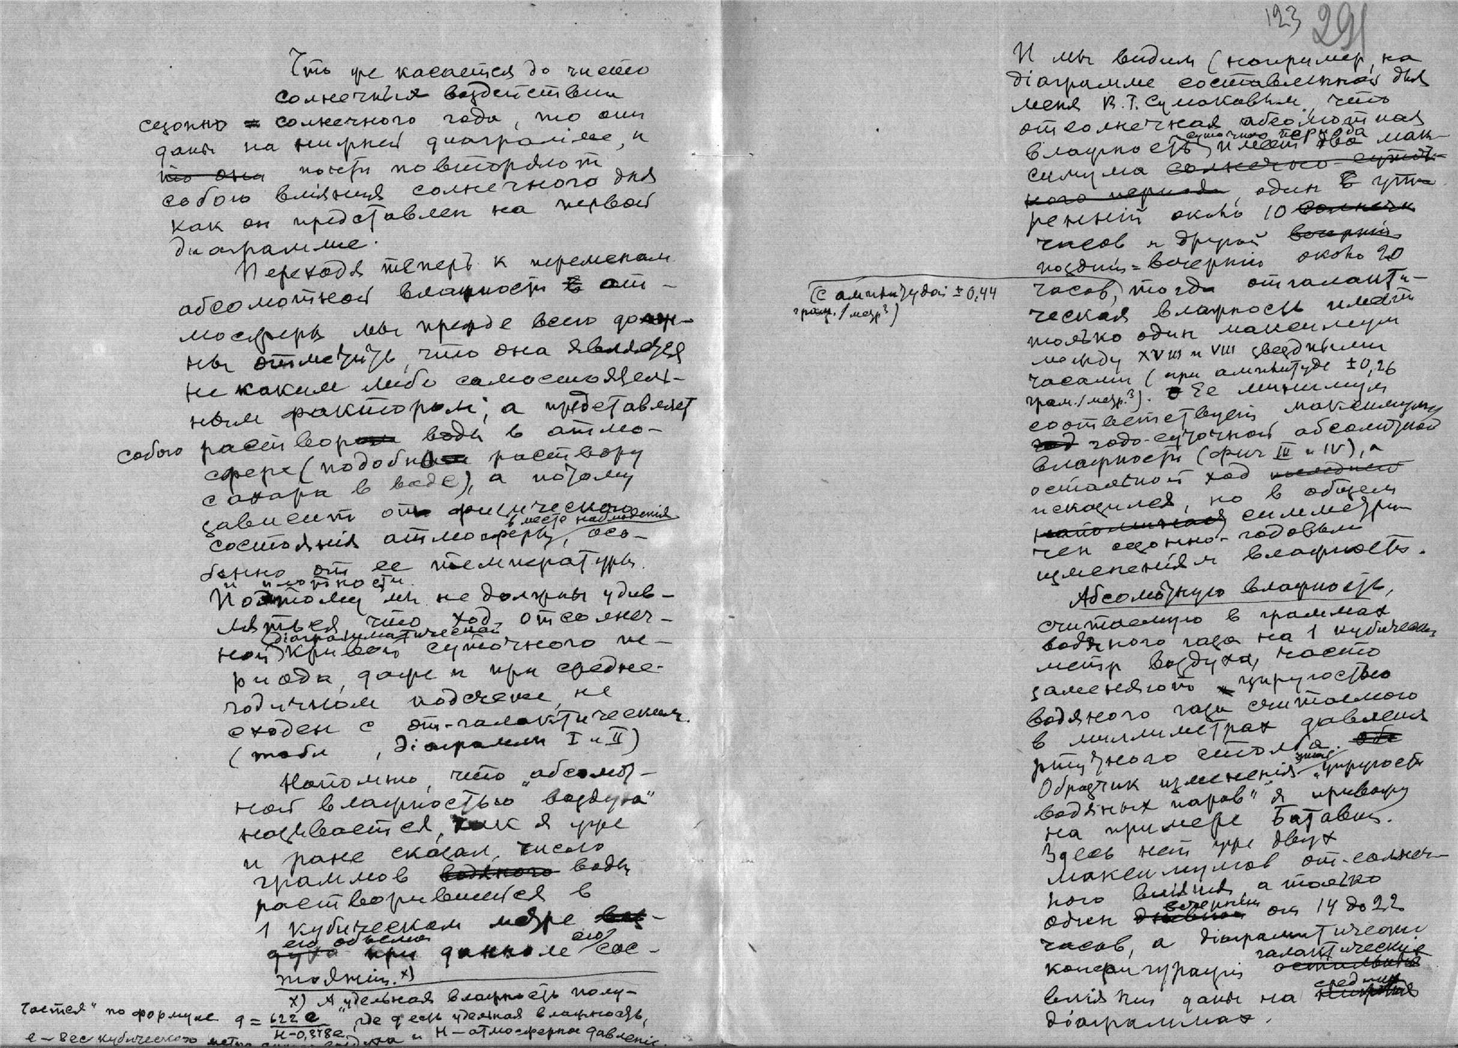 Что же касается до чисто
солнечных воздействий
сезонно = солнечного года, то они
даны на нижней диаграмме, и
то она почти повторяют
собою влияния солнечного дня
как он представлен на первой
диаграмме.
Переходя теперь к переменам
абсолютной влажности в ат-
мосферы мы прежде всего долж-
ны отметить, что она является
не каким либо самостоятель-
ным фактором, а представляет
собою раствор воды в атмо-
сфере (подобный раствору
сахара в воде), а потому
зависит от физического
состояния атмосферы в месте наблюдения, осо-
бенно от ее температуры
и плотности.
Поэтому мы не должны удив-
ляться что ход отсолнеч-
ной диаграмматической кривой суточного пе-
риода, даже и при средне-
годичном подсчете, не
сходен с от-галактическим.
(табл , діаграммы I и II)
Напомню, что "абсолют-
ной влажностью воздуха"
называется, как я уже
и ране сказал, число
граммов водяного воды
растворившейся в
1 кубическом метре воз-
духа его объема при данном его сос-
тоянии. x)
x) А удельная влажность полу-
чается" по формуле q = 622 e / H-0,378e, где q есть удельная влажность,
e – вес кубического метра и H – атмосферное давленіе.
123 291
И мы видим (например, на
діаграмме составленной для
меня В.Т. Сумаковым, что
отсолнечная абсолютная
влажность суточного периода имеет два мак-
симума солнечно-суточ-
ного периода, один в ут-
ренній около 10 солнечн
часов и другой вечерній
поздни=вечерній около 20
часов, (с амплитудой ± 0,44
грам./метр³)
тогда отгалакти-
ческая влажность имеет
только один максимум
между XVIII и VIII звездными
часами (при амплитуде ±0,26
грам./метр³). Ее минимум
соответствует максимуму
год годо-суточной абсолютной
влажности (фиг III и IV), а
остальной ход последнего
искажился, но в общем
напоминая симметри-
чен сезонно-годовым
измененіям влажности.
Абсолютную влажность,
считаемую в граммах
водяного газа на 1 кубический
метр воздуха, часто
заменяют упругостью
водяного газа считаемого
в миллиметрах давления
ртутного столба. Обе
Образчик измененія этой "упругости
водяных паров" я привожу
на примере Батавии.
Здесь нет уже двух
максимумов от-солнеч-
ного вліянія, а только
один дневной вечерний от 14 до 22
часов, а діаграмматическіе
конфигураціи остальные галактическіе
вліяний даны на нижней средних
діаграммах.